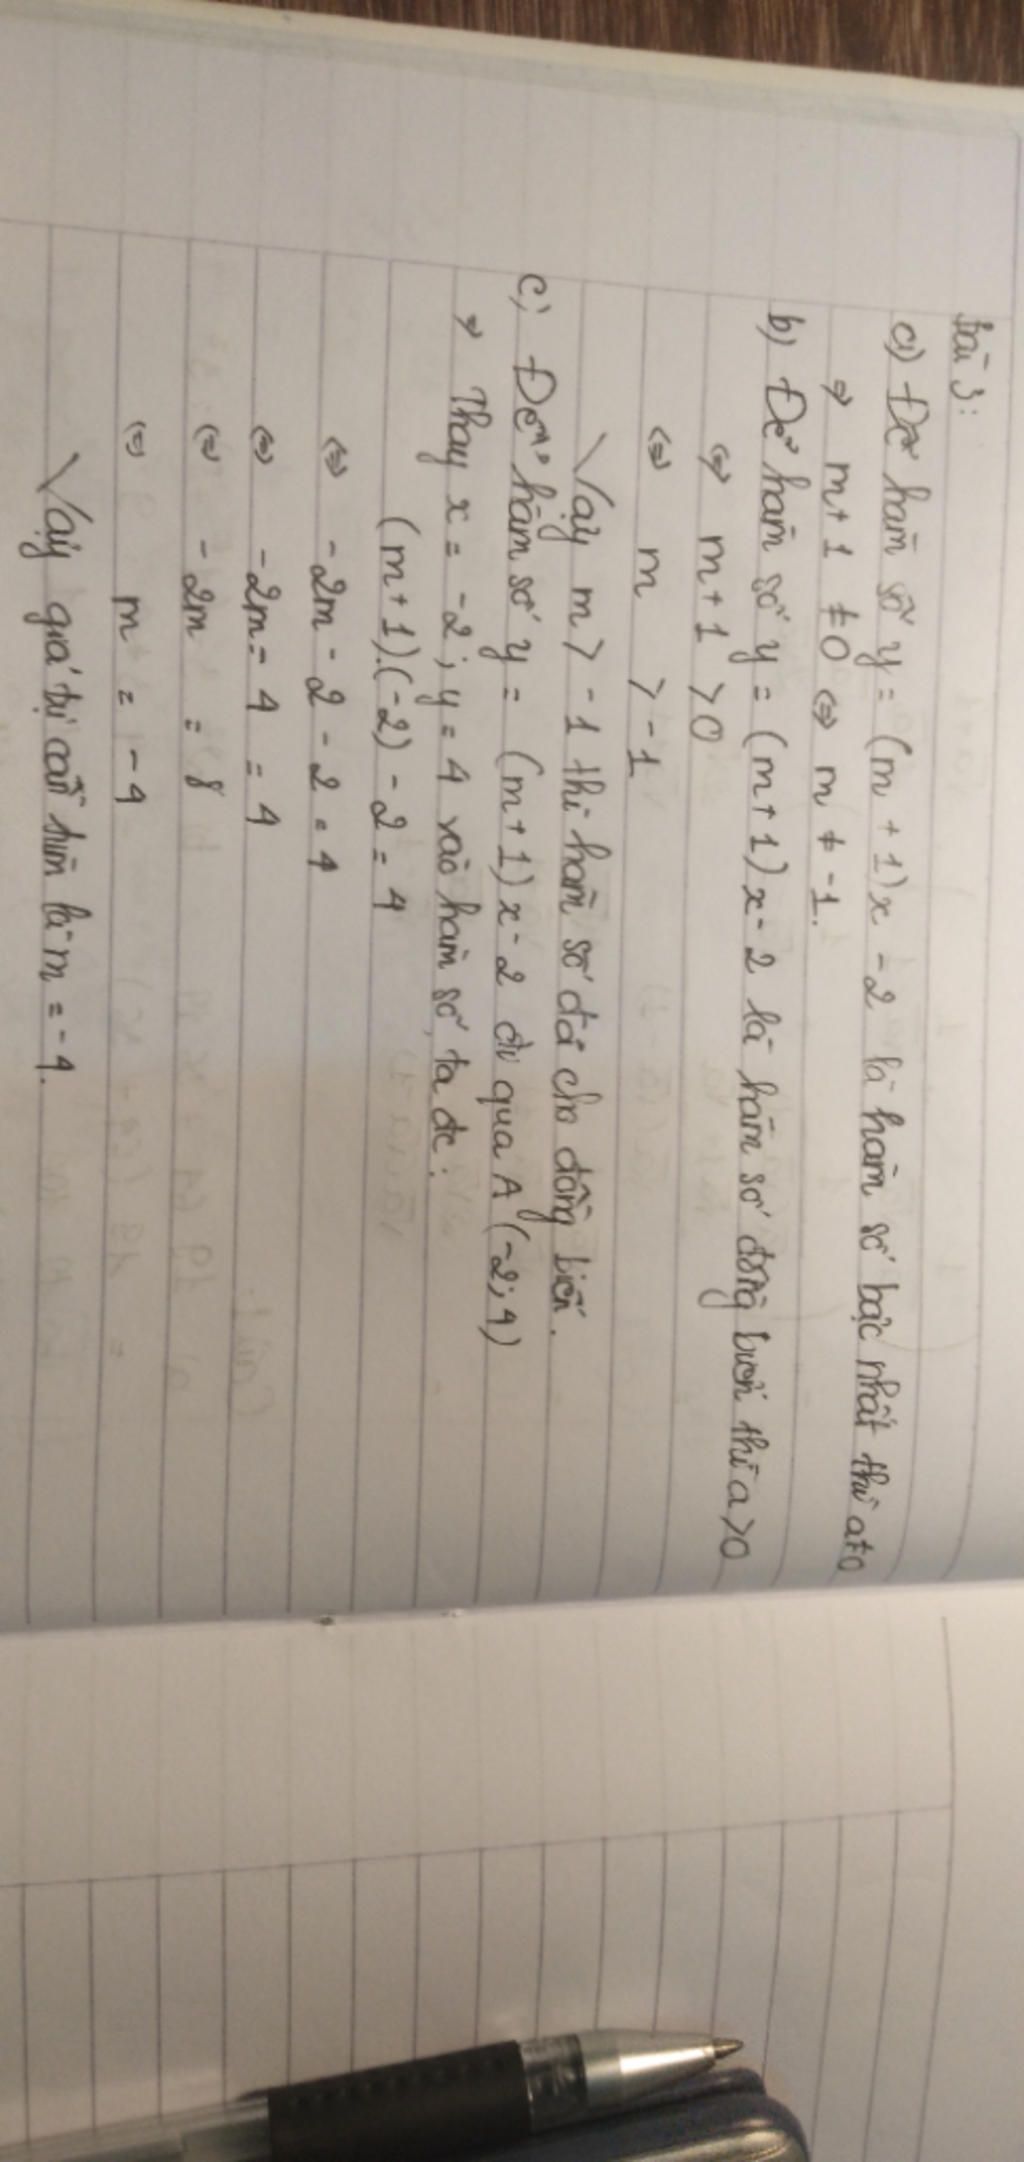 Bài 3:
a) Để hàm số y = (m + 1)x - 2 là hàm số bậc nhất thì a≠0
=> m+1 ≠0 <=> m ≠ -1.
b) Để hàm số y = (m+1)x-2 là hàm số đồng biến thì a>0
<=> m+1 >0
<=> m > -1
Vậy m > -1 thì hàm số đã cho đồng biến.
c) Để hàm số y = (m+1)x-2 đi qua A (-2; 4)
=> Thay x = -2; y = 4 vào hàm số, ta đc:
(m+1).(-2) - 2 = 4
<=> -2m - 2 - 2 = 4
<=> -2m - 4 = 4
<=> -2m = 8
<=> m = -4
Vậy giá trị cần tìm là m = -4.